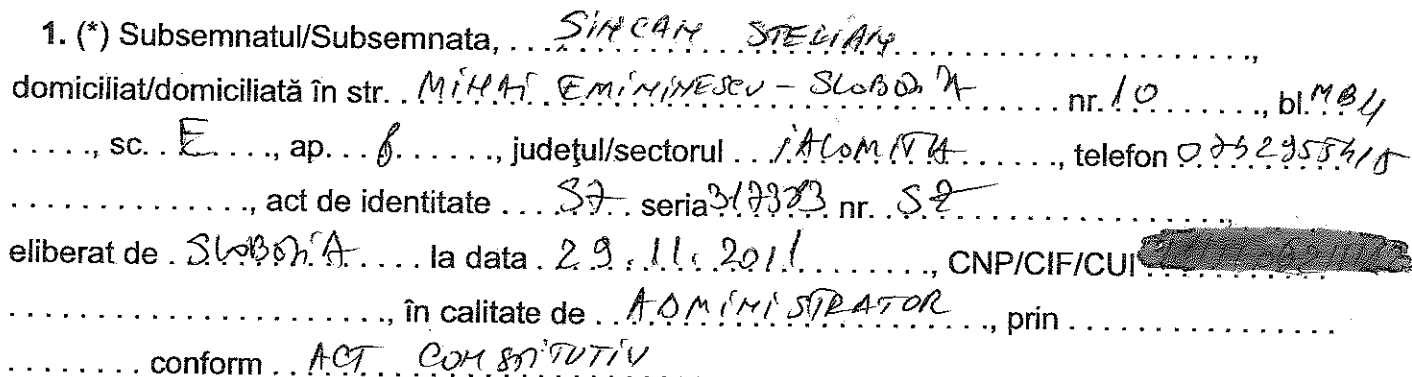 1. (*) Subsemnatul/Subsemnata, . . . SIMCAN STELIAN . . . . . . . . . . . . . . . . . . . . . . . .,
domiciliat/domiciliată în str. . MIHAI EMININESCU - SLOBOZIA . . . . . . nr. 10 . . . . . . ., bl. MB4
. . . . ., sc. . E . . . ., ap. . . 6 . . . . . ., judeţul/sectorul . . IALOMITA . . . . . ., telefon
. . . . . . . . . . . . . ., act de identitate . . . . SZ . . seria nr. . SZ . . . . . . . . . . . . . . . . . . . . . . . .,
eliberat de . SLOBOZIA . . . . la data . 29.11.2011 . . . . . . . ., CNP/CIF/CUI
. . . . . . . . . . . . . . . . . . . . . ., în calitate de . . ADMINISTRATOR . . ., prin . . . . . . . . . . . . . . .
. . . . . . . . conform . . ACT CONSTITUTIV